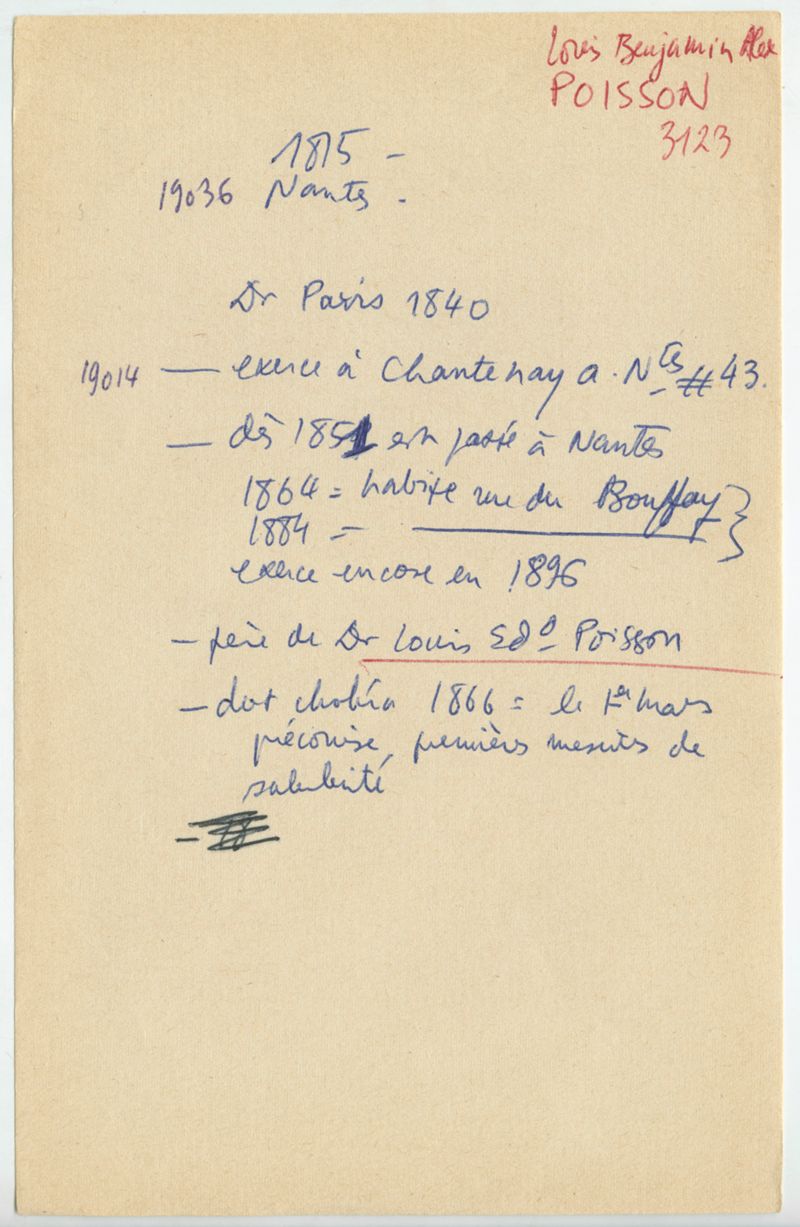 Louis Benjamin Alex
POISSON
3123
1815 -
19036 Nantes -
Dr Paris 1840
19014 — exerce à Chantenay a. Ntes # 43.
— dès 1851 est passé à Nantes
1864 = habite rue du Bouffay }
1884 = ——— }
exerce encore en 1896
- père de Dr Louis Edd Poisson
- doct choléra 1866 = le 1er mars
préconise premières mesures de
salubrité
-